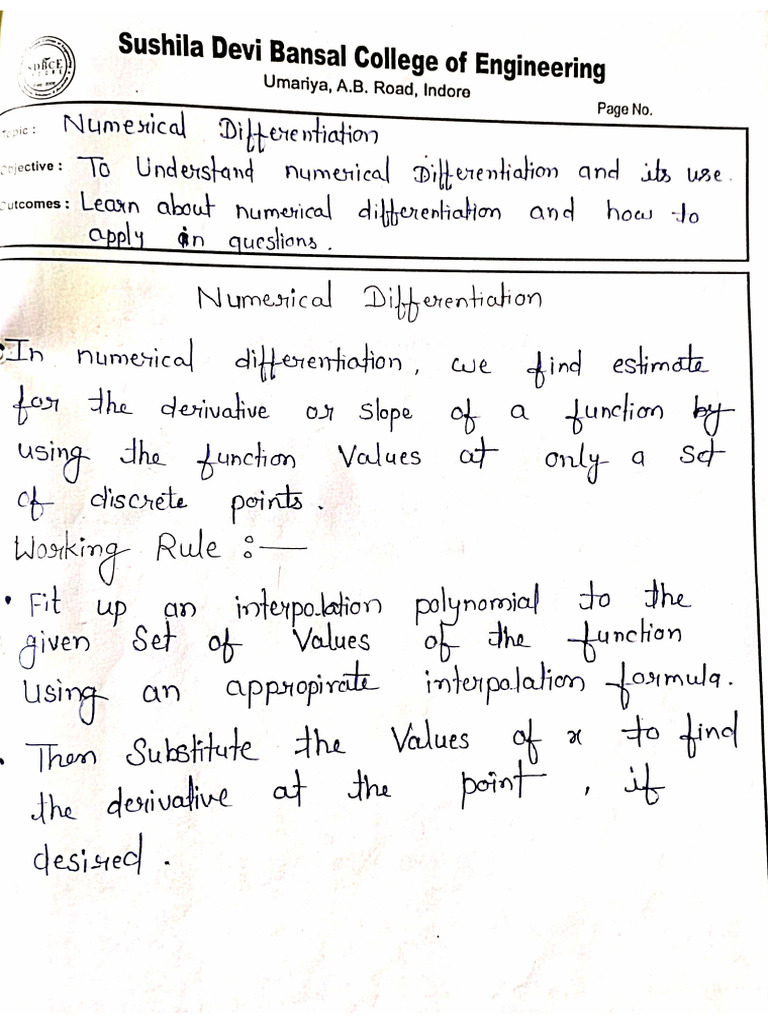 Sushila Devi Bansal College of Engineering
SDBCE
Umariya, A.B. Road, Indore
Page No.
Topic : Numerical Differentiation
Objective : To Understand numerical Differentiation and its use.
Outcomes : Learn about numerical differentiation and how to
apply in questions.
Numerical Differentiation
In numerical differentiation, we find estimate
for the derivative or slope of a function by
using the function Values at only a set
of discrete points.
Working Rule :—
• Fit up an interpolation polynomial to the
given Set of Values of the function
using an appropirate interpolation formula.
• Then Substitute the Values of x to find
the derivative at the point, if
desired.